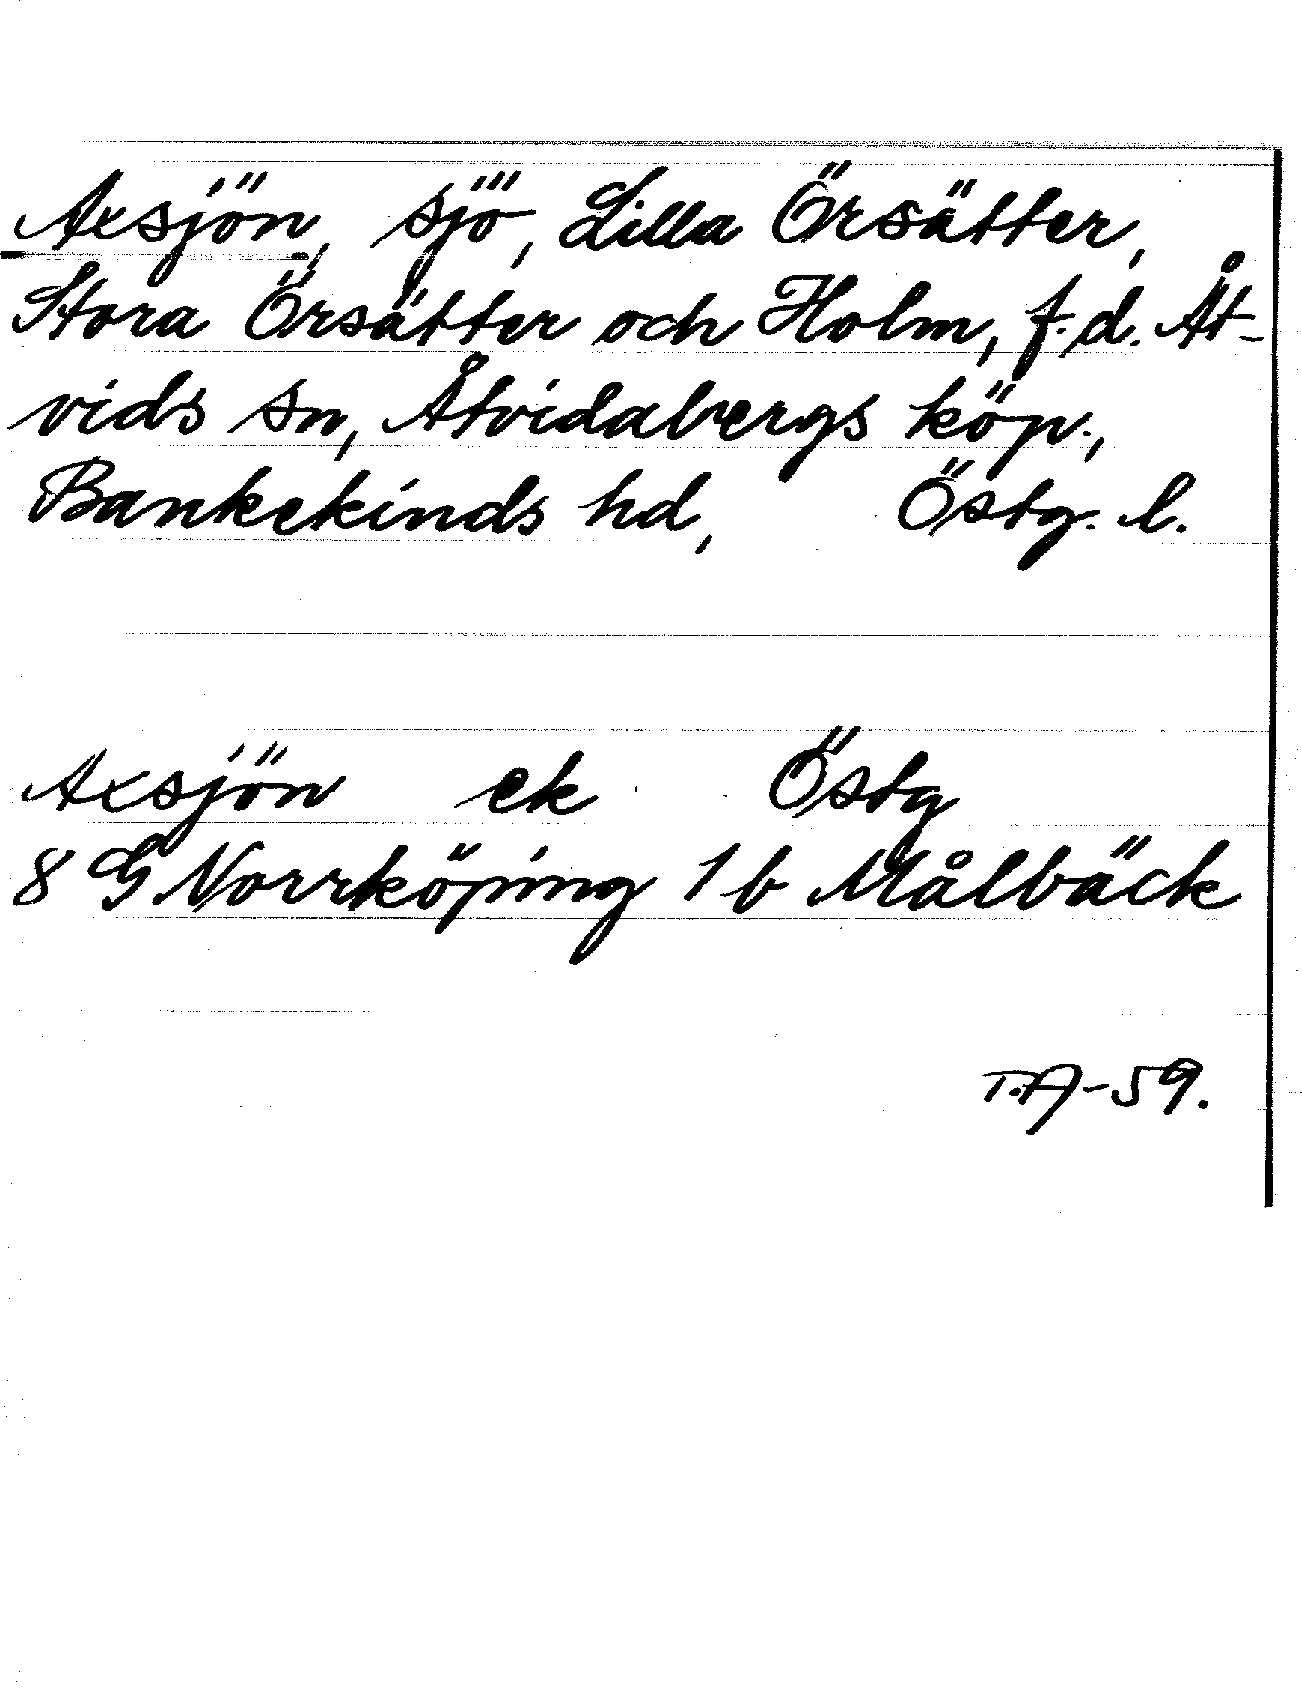 Axsjön, sjö, Lilla Örsätter,
Stora Örsätter och Holm, f.d. Åt-
vids sn, Åtvidabergs köp.,
Bankekinds hd, Östg. l.
Axsjön ek Östg
8 G Norrköping 1 b Målbäck
T.A-59.